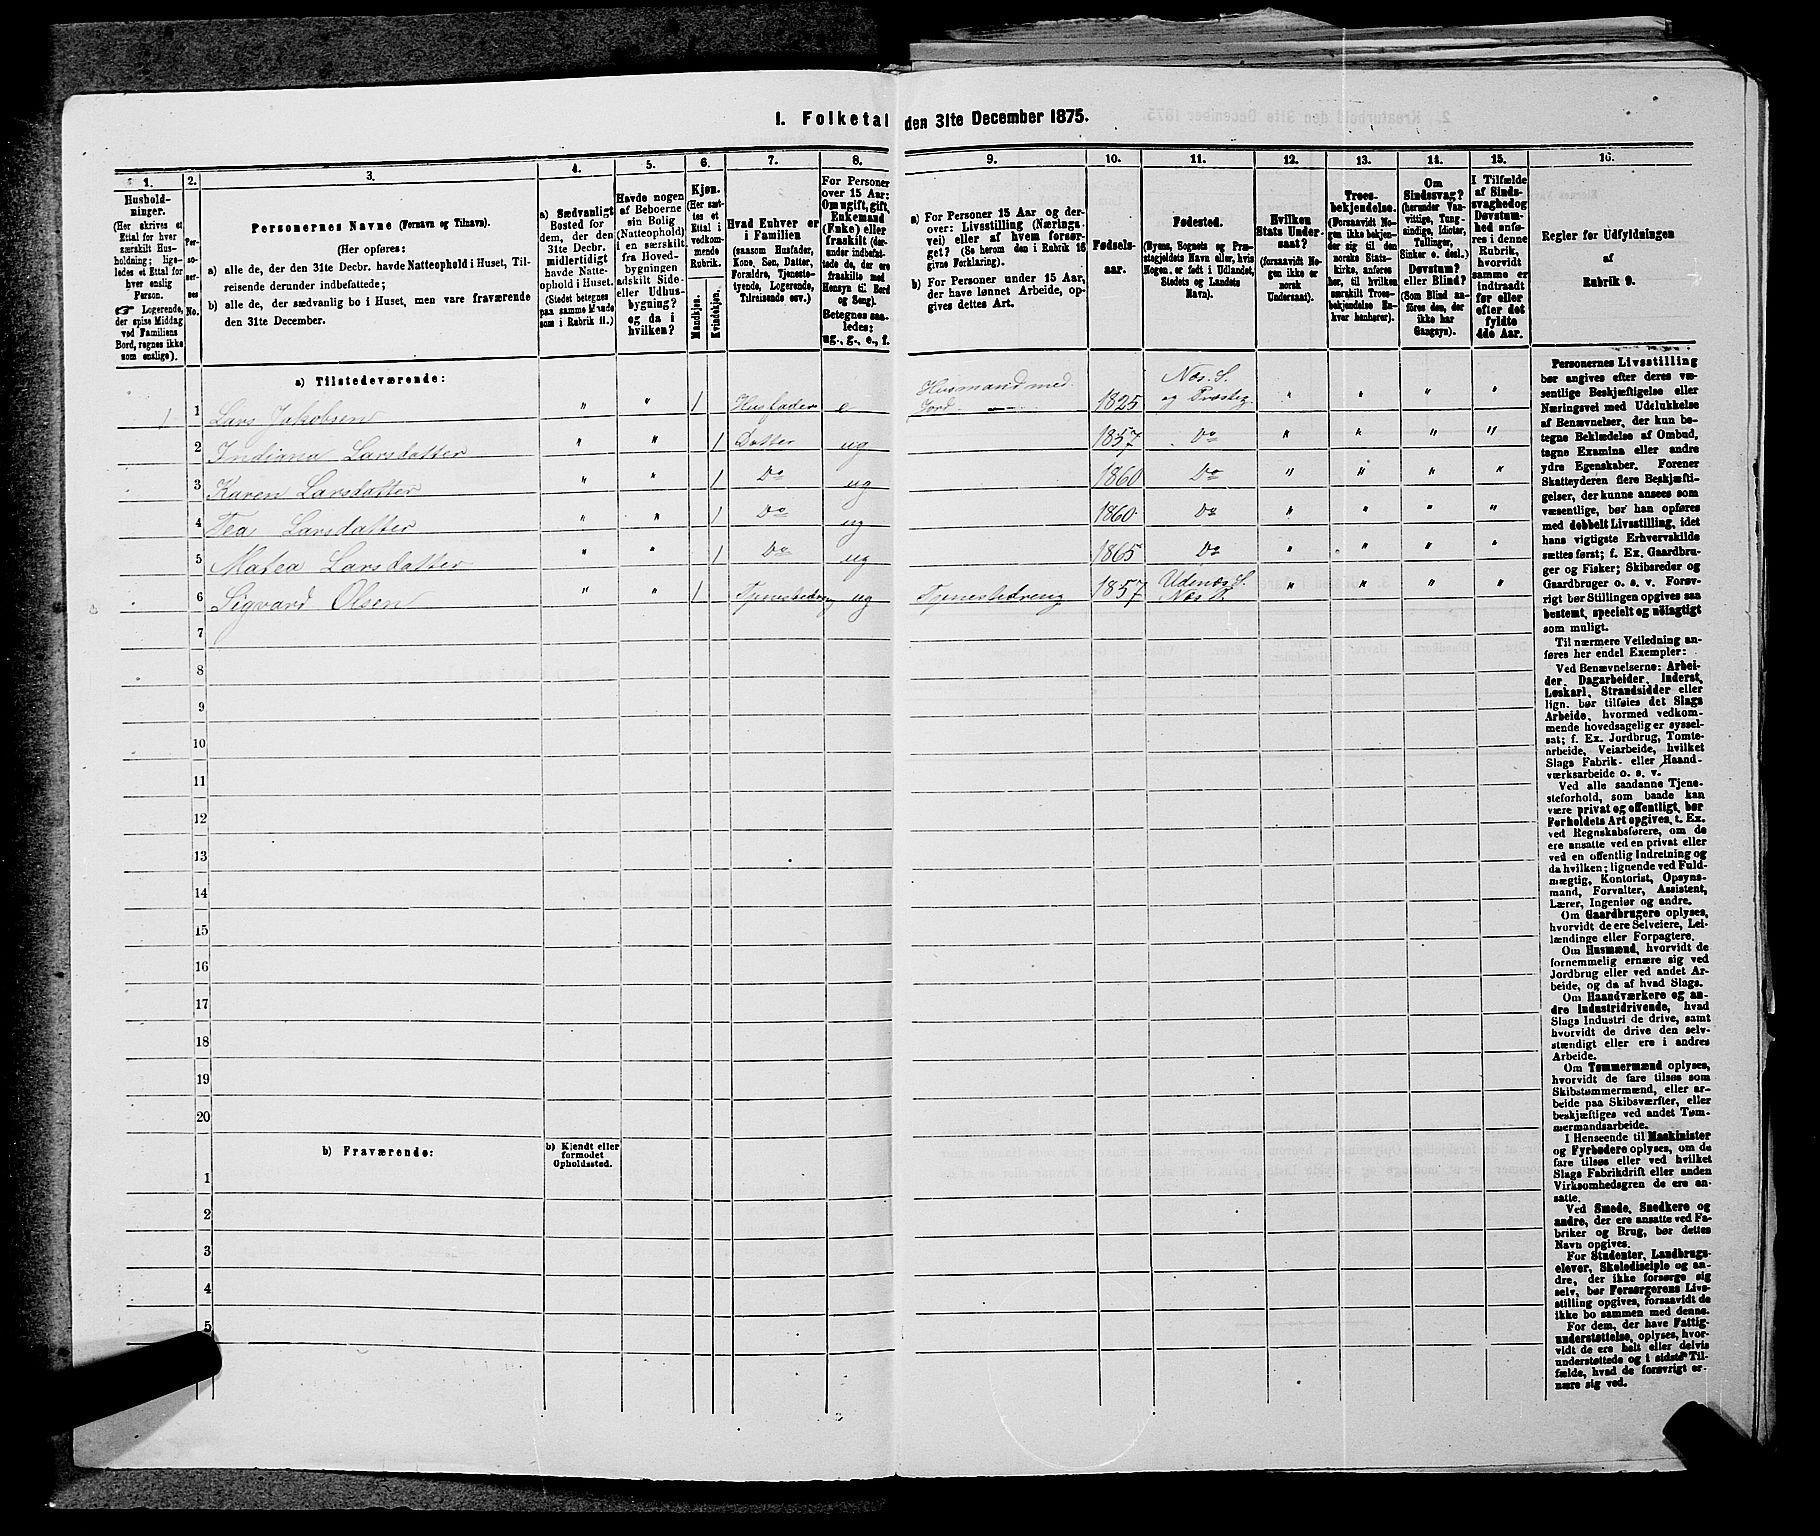 I. Folketal den 31te December 1875.
1. 2. 3. 4. 5. 6. 7. 8. 9. 10. 11. 12. 13. 14. 15. 16.
Hushold-
ninger.
(Her skrives et
Ettal for hver
særskilt Hus-
holdning; lige-
ledes et Ettal for
hver enslig
Person.
☞ Logerende,
der spise Middag
ved Familiens
Bord, regnes ikke
som enslige).
Per-
so-
ner-
nes
No.
Personernes Navne (Fornavn og Tilnavn).
(Her opføres:
a) alle de, der den 31te Decbr. havde Natteophold i Huset, Til-
reisende derunder indbefattede;
b) alle de, der sædvanlig bo i Huset, men vare fraværende
den 31te December.
a) Sædvanligt
Bosted for
dem, der den
31te Decbr.
midlertidigt
havde Natte-
ophold i Huset.
(Stedet betegnes
paa samme Maade
som i Rubrik 11.)
Havde nogen
af Beboerne
sin Bolig
(Natteophold)
i en særskilt
fra Hoved-
bygningen
adskilt Side-
eller Udhus-
bygning?
og da i
hvilken?
Kjøn.
(Her sæt-
tes et
Ettal i
vedkom-
mende
Rubrik.
Mandkjøn.
Kvindekjøn.
Hvad Enhver er
i Familien
(saasom Husfader,
Kone, Søn, Datter,
Forældre, Tjeneste-
tyende, Logerende,
Tilreisende osv.)
For Personer
over 15 Aar:
Om ugift, gift,
Enkemand
(Enke) eller
fraskilt (der-
under indbefat-
tede de, der ere
fraskilte med
Hensyn til Bord
og Seng).
Betegnes saa-
ledes:
ug., g., e., f.
a) For Personer 15 Aar og der-
over: Livsstilling (Nærings-
vei) eller af hvem forsør-
get? (Se herom den i Rubrik 16
givne Forklaring).
b) For Personer under 15 Aar,
der have lønnet Arbeide, op-
gives dettes Art.
Fødsels-
aar.
Fødested.
(Byens, Sognets og Præ-
stegjeldets Navn eller, hvis
Nogen er født i Udlandet,
Stedets og Landets
Navn).
Hvilken
Stats Under-
saat?
(forsaavidt No-
gen ikke er
norsk
Undersaat).
Troes-
bekjendelse.
(Forsaavidt No-
gen ikke bekjen-
der sig til den
norske Stats-
kirke, anføres
her, til hvilken
særskilt Troes-
bekjendelse En-
hver henhører).
Om
Sindssvag?
(herunder Van-
vittige, Tung-
sindige, Idioter,
Tullinger,
Sinker o. desl.).
Døvstum?
eller Blind?
(Som Blind an-
føres den, der
ikke har
Gangsyn).
I Tilfælde
af Sinds-
svaghed og
Døvstum-
hed anfø-
res i denne
Rubrik,
hvorvidt
samme er
indtraadt
før eller
efter det
fyldte
4de Aar.
Regler for Udfyldningen
af
Rubrik 9.
a) Tilstedeværende:
1 1 Lars Jakobsen " " 1 Husfader e Husmand med Jord 1825 Næs S. og Præsteg. " " " "
2 Indiana Larsdatter " " 1 Datter ug 1857 Do " " " "
3 Karen Larsdatter " " 1 Do ug 1860 Do " " " "
4 Tea Larsdatter " " 1 Do ug 1860 Do " " " "
5 Matea Larsdatter " " 1 Do ug 1865 Do " " " "
6 Sigvard Olsen " " 1 Tjenestedreng ug Tjenestedreng 1857 Udenæs S. Næs P. " " " "
7
8
9
10
11
12
13
14
15
16
17
18
19
20
b) Fraværende:
b) Kjendt eller
formodet
Opholdssted.
1
2
3
4
5
Personernes Livsstilling
bør angives efter deres væ-
sentlige Beskjæftigelse eller
Næringsvei med Udelukkelse
af Benævnelser, der kun be-
tegne Beklædelse af Ombud,
tagne Examina eller andre
ydre Egenskaber. Forener
Skatteyderen flere Beskjæfti-
gelser, der kunne ansees som
væsentlige, bør han opføres
med dobbelt Livsstilling, idet
hans vigtigste Erhvervskilde
sættes først; f. Ex. Gaardbru-
ger og Fisker; Skibsreder og
Gaardbruger o. s. v. Forøv-
rigt bør Stillingen opgives saa
bestemt, specielt og nöiagtigt
som muligt.
Til nærmere Veiledning an-
føres her endel Exempler:
Ved Benævnelserne: Arbei-
der, Dagarbeider, Inderst,
Løskarl, Strandsidder eller
lign. bør tilføies det Slags
Arbeide, hvormed vedkom-
mende hovedsagelig er syssel-
sat; f. Ex. Jordbrug, Tomte-
arbeide, Veiarbeide, hvilket
Slags Fabrik- eller Haand-
værksarbeide o. s. v.
Ved alle saadanne Tjene-
steforhold, som baade kan
være privat og offentligt, bør
Forholdets Art opgives, t. Ex.
ved Regnskabsførere, om de
ere ansatte ved en privat eller
ved en offentlig Indretning og
da hvilken; lignende ved Fuld-
mægtig, Kontorist, Opsyns-
mand, Forvalter, Assistent,
Lærer, Ingeniør og andre.
Om Gaardbrugere oplyses,
hvorvidt de ere Selveiere, Lei-
lændinge eller Forpagtere.
Om Husmænd, hvorvidt de
fornemmelig ernære sig ved
Jordbrug eller ved andet Ar-
beide, og da af hvad Slags.
Om Haandværkere og an-
dre Industridrivende, hvad
Slags Industri de drive, samt
hvorvidt de drive den selv-
stændigt eller ere i andres
Arbeide.
Om Tømmermænd oplyses,
hvorvidt de fare tilsøs som
Skibstømmermænd, eller ar-
beide paa Skibsværfter, eller
beskjæftiges ved andet Tøm-
mermandsarbeide.
I Henseende til Maskinister
og Fyrbødere oplyses, om de
fare tilsøs eller ved hvilket
Slags Fabrikdrift eller anden
Virksomhedsgren de ere an-
satte.
Ved Smede, Snedkere og
andre, der ere ansatte ved Fa-
briker og Brug, bør dettes
Navn opgives.
For Studenter, Landbrugs-
elever, Skoledisciple og an-
dre, der ikke forsørge sig
selv, bør Forsørgerens Livs-
stilling opgives, forsaavidt de
ikke bo sammen med denne.
For dem, der have Fattig-
understøttelse, oplyses, hvor-
vidt de ere helt eller delvis
understøttede og i sidste Til-
fælde, hvad de forøvrigt er-
nære sig ved.